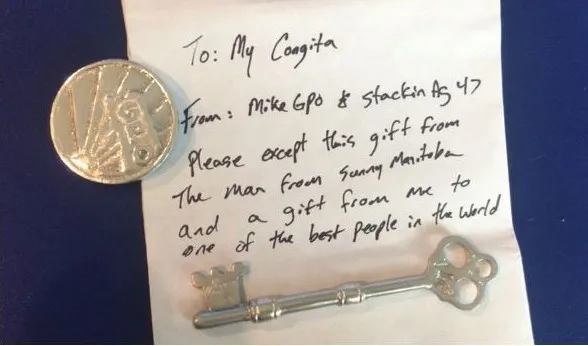 To: My Congita
From: Mike GPO & StackinAg 47
Please except this gift from
The man from Sunny Manitoba
and a gift from me to
one of the best people in the world
GPO